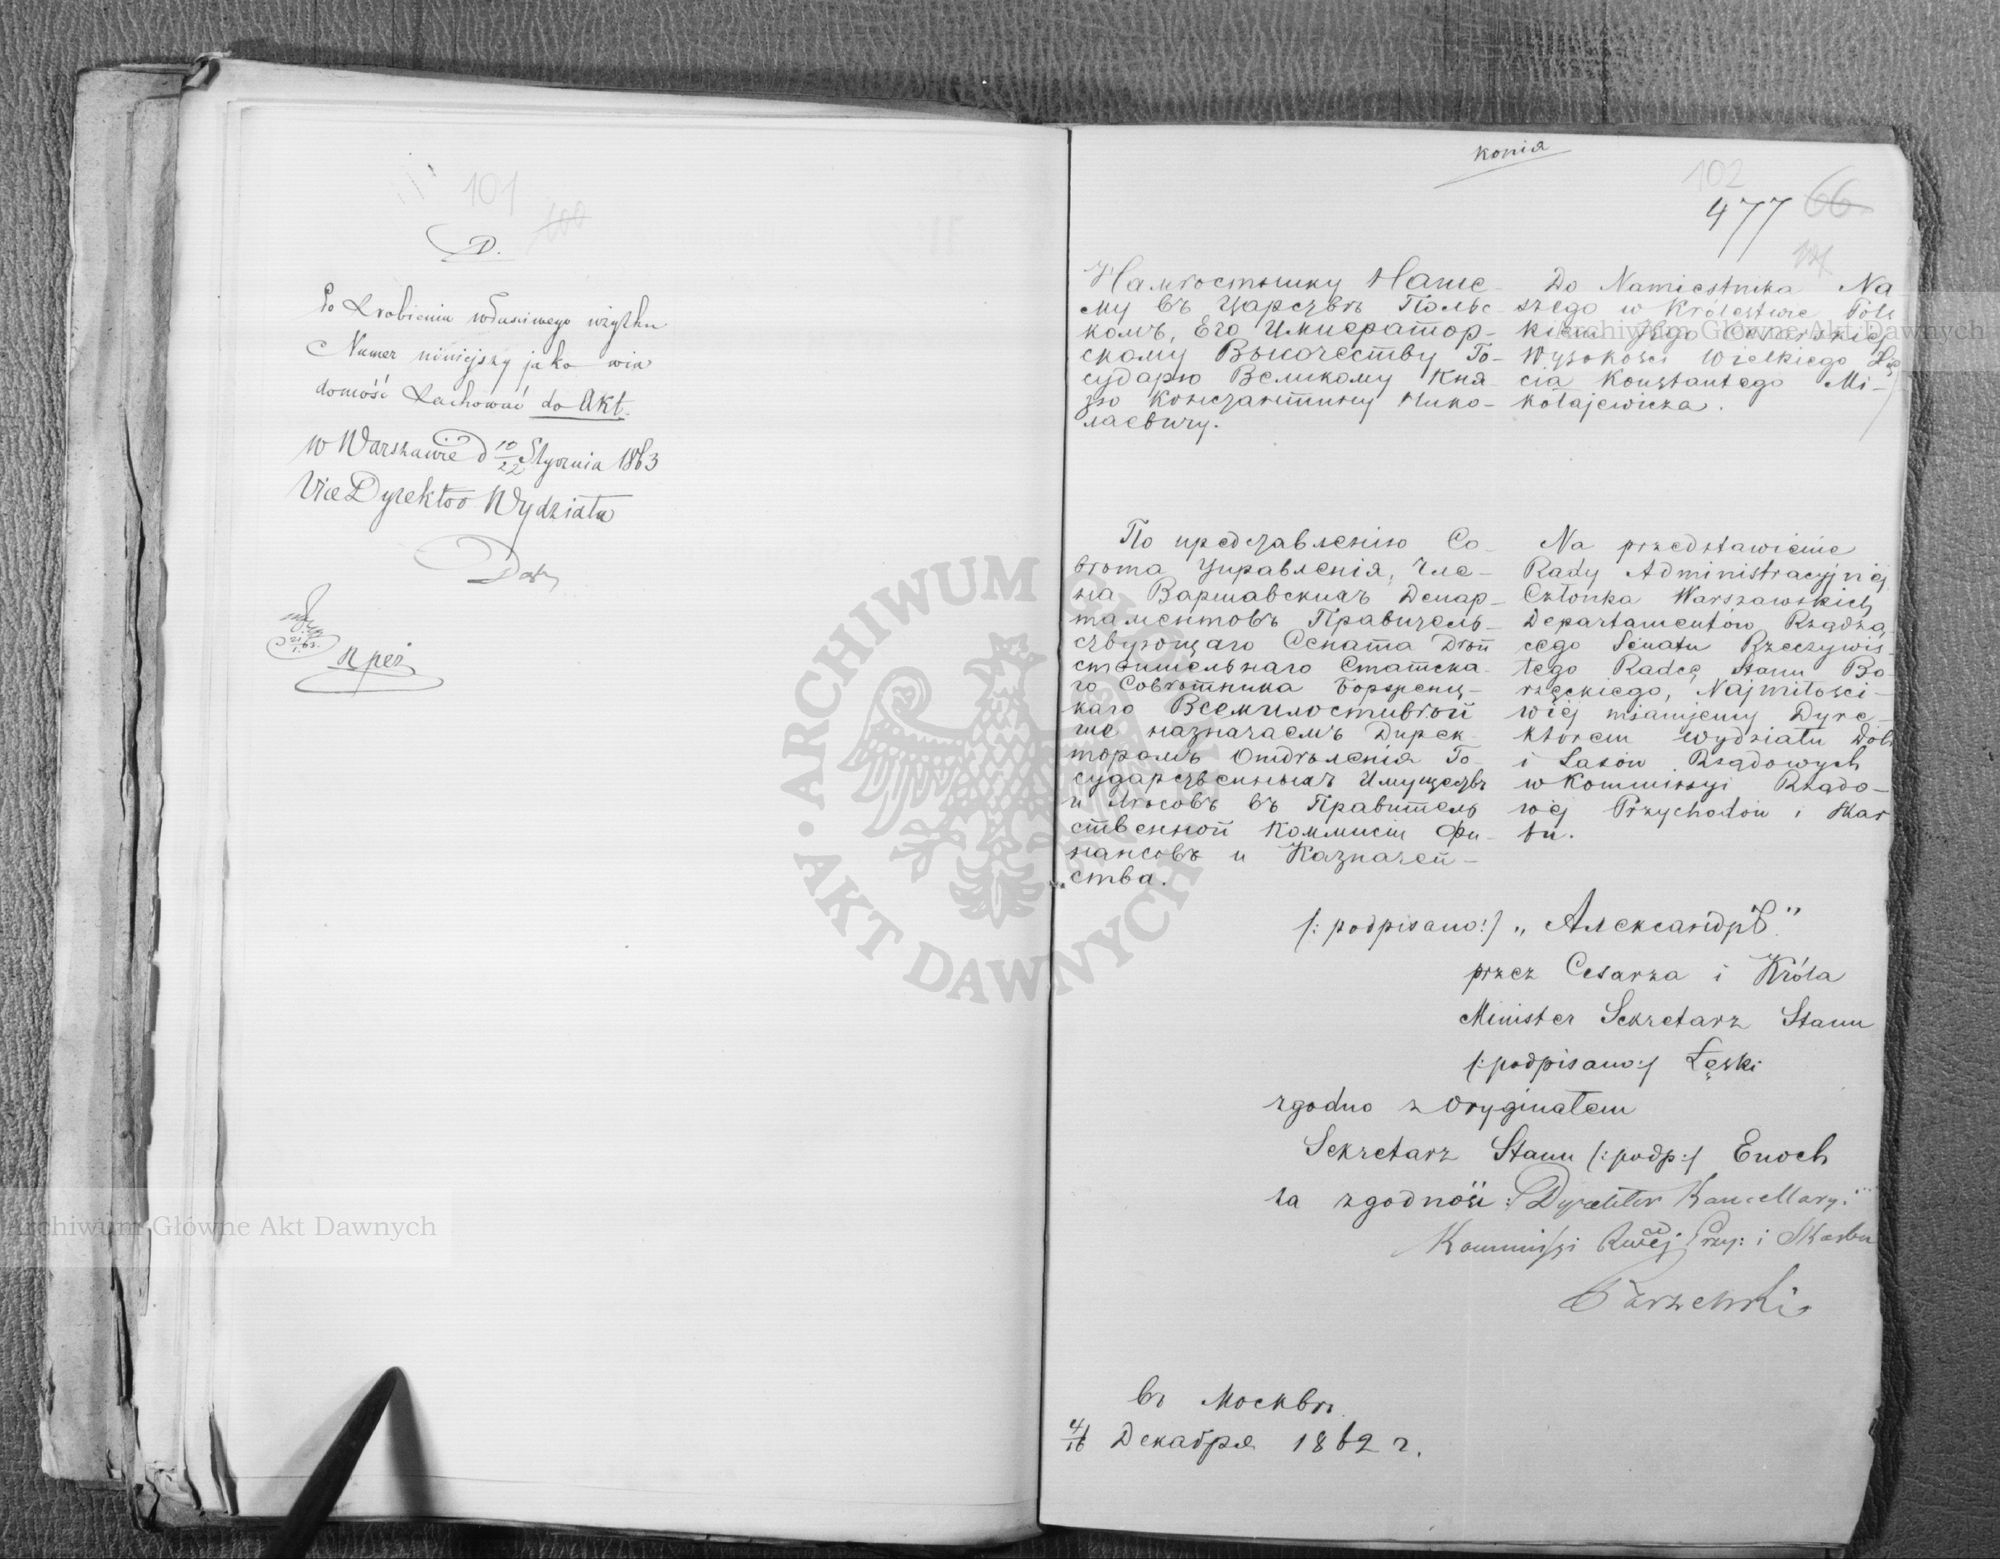 101
100
D.
Po zrobieniu właściwego użytku
Numer niniejszy jako wia
domość zachować do Akt.
w Warszawie d 10/22 Stycznia 1863
Vice Dyrektor Wydziału
kopia
102
477 66
Намѣстнику Наше-
му въ Царствѣ Польс-
комъ, Его Император-
скому Высочеству Го-
сударю Великому Кня-
зю Константину Нико-
лаевичу.
Do Namiestnika Na
szego w Królestwie Pols
kiem Jego Cesarskiej
Wysokości Wielkiego Xię
cia Konstantego Mi-
kołajewicza.
По представленію Со-
вѣта Управленія, Чле-
на Варшавскихъ Депар-
таментовъ Правитель-
ствующаго Сената Дѣй
ствительнаго Статска-
го Совѣтника Борженц-
каго Всемилостивѣй
ше назначаемъ Дирек-
торомъ Отдѣленія Го-
сударственныхъ Имуществъ
и Лѣсовъ въ Правитель
ственной Коммисіи Фи-
нансовъ и Казначей-
ства.
Na przedstawienie
Rady Administracyjnej
Członka Warszawskich
Departamentów Rządzą
cego Senatu Rzeczywis-
tego Radcę Stanu Bo-
rzęckiego, Najmiłości-
wiej mianujemy Dyre-
ktorem Wydziału Dóbr
i Lasów Rządowych
w Kommissyi Rządo-
wej Przychodów i Skar
bu.
/: podpisano:/ „Александръ"
przez Cesarza i Króla
Minister Sekretarz Stanu
/:podpisano:/ Łęski
zgodno z Oryginałem
Sekretarz Stanu /:podp:/ Enoch
za zgodność: Dyrektor Kancellaryi
Kommissyi Rwej Przy: i Skarbu
въ Москвѣ
4/16 Декабря 1862 г.
Archiwum Główne Akt Dawnych
Archiwum Główne Akt Dawnych
ARCHIWUM GŁÓWNE AKT DAWNYCH